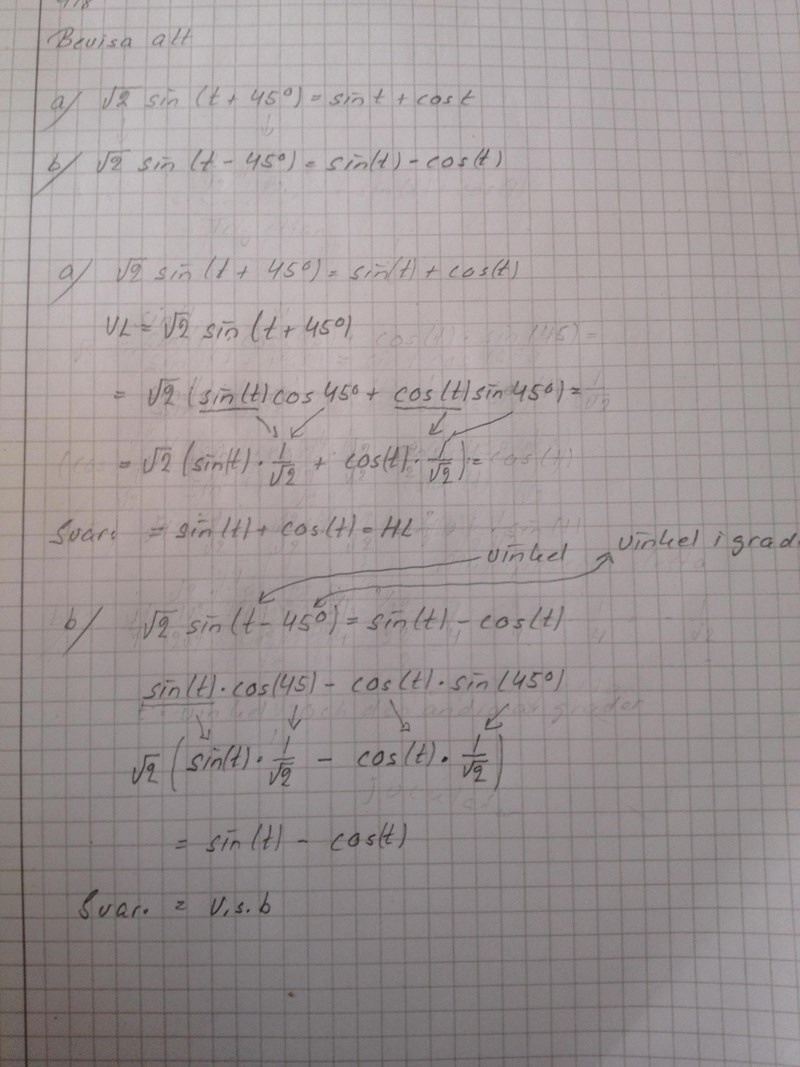 Bevisa att
a) √2 sin (t + 45°) = sin t + cos t
b) √2 sin (t - 45°) = sin(t) - cos(t)
a) √2 sin (t + 45°) = sin(t) + cos(t)
VL = √2 sin (t + 45°)
= √2 (sin(t) cos 45° + cos(t) sin 45°) =
= √2 (sin(t) · 1/√2 + cos(t) · 1/√2) =
Svar: = sin(t) + cos(t) = HL
vinkel vinkel i grad
b) √2 sin(t - 45°) = sin(t) - cos(t)
sin(t) · cos(45) - cos(t) · sin(45°)
√2 (sin(t) · 1/√2 - cos(t) · 1/√2)
= sin(t) - cos(t)
Svar. = V.s.b